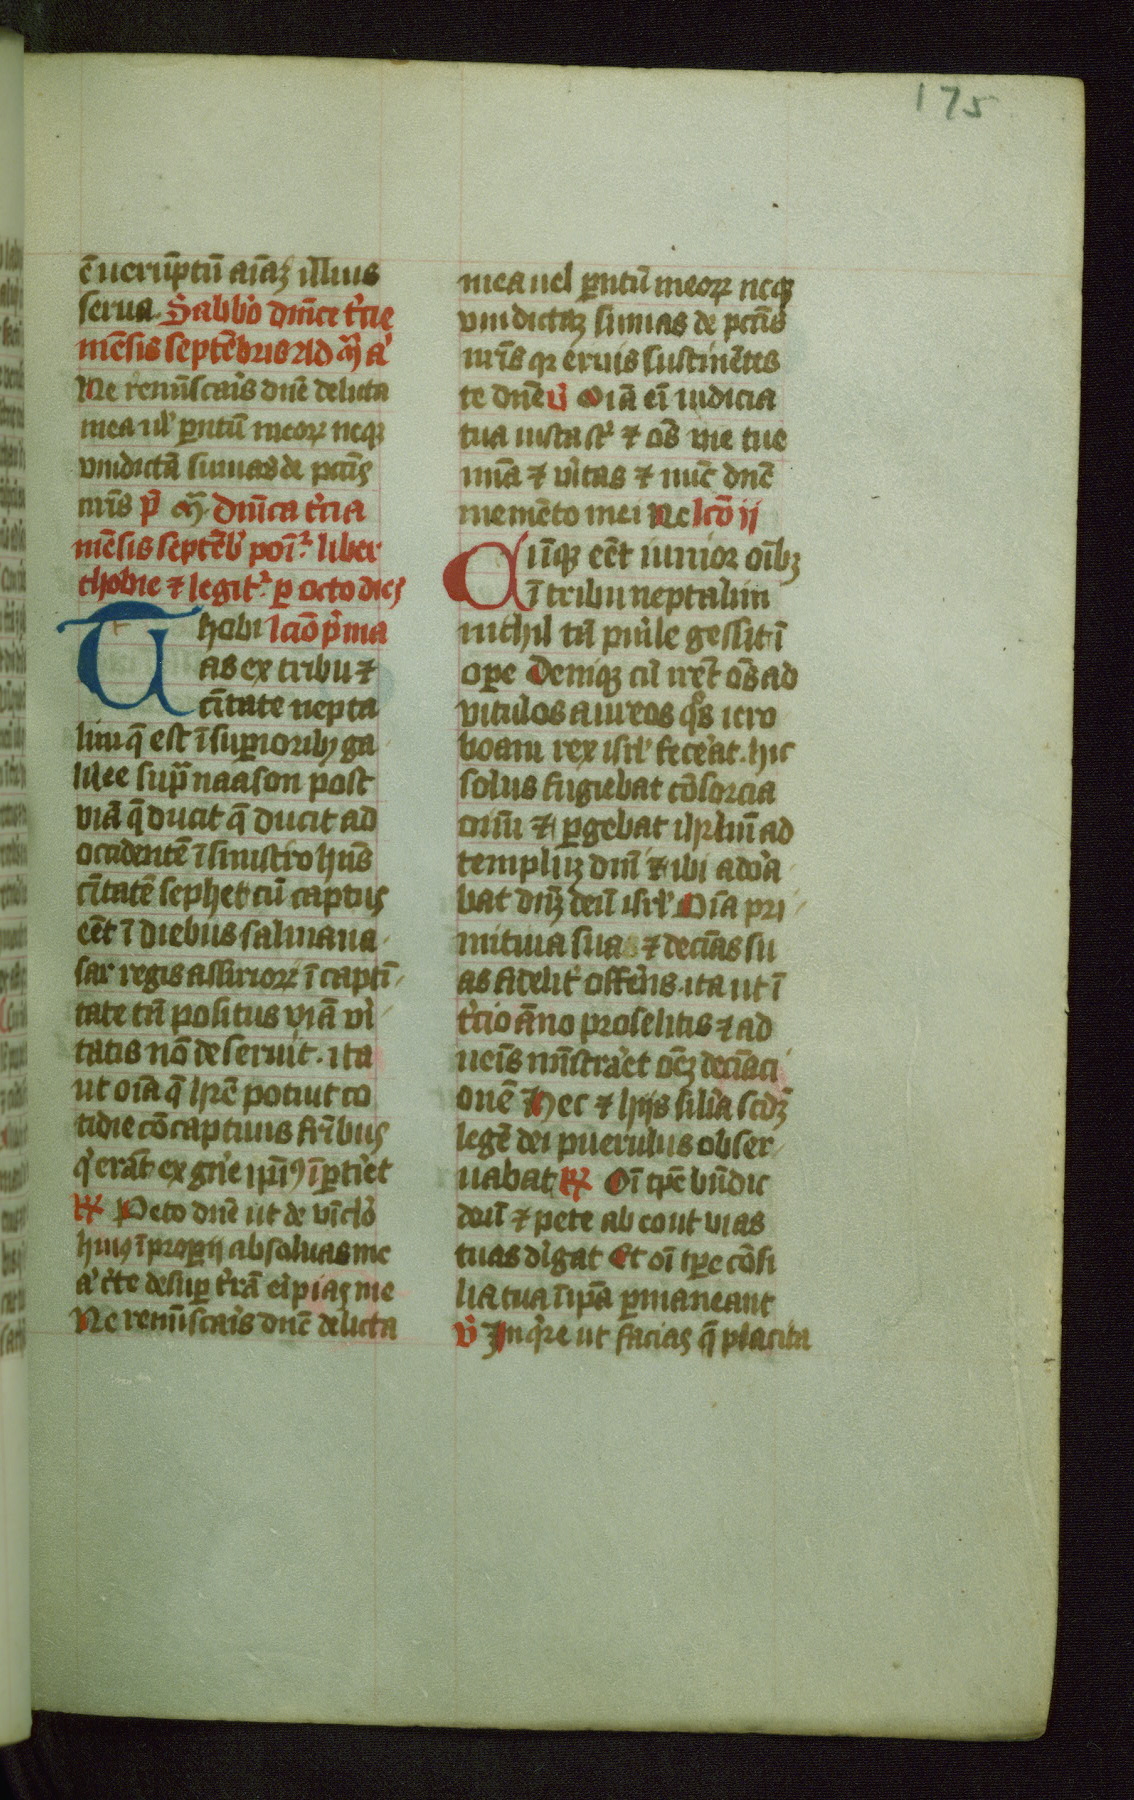 175
ē ueru̅ptū aīaȝ illius
serua. Sabb'o dn̄ice t'cie
mēsis septēbris Ad m̄ a'
Ne remīscaris dne delicta
mea ul' pn̄tū meoꝝ neqꝫ
vindictā sumas de pcc̄is
nr̄is p̄ m̄. Dn̄ica t'cia
mēsis septēb' poīt' liber
thobie ⁊ legit' p octo dies
Thobi lcīo p'ma
as ex tribu ⁊
cīitate nepta
lim q̄ est ī sup̄ioribȝ ga
lilee sup̄ naason post
viā q̄ ducit q̄ ducit ad
occidentē ī sinistro hn̄s
cīitatē sephet cū captus
eēt ī diebus salmana
sar regis assirioꝝ ī captī
tate tn̄ positus viā v'i
tatis nō deseruit. ita
ut oīa q̄ hr̄e potiut co
tidie cōcaptiuis fr̄ibus
q' erāt ex gn̄e ip̄iꝰ īpt'iet
℟ Peto dn̄e ut de vīclo
huiꝰ īproperij absoluas me
a' c'te desup t'rā eipias me
Ne remīscaris dn̄e delicta
mea uel pn̄tū meoꝝ neqꝫ
vindictaȝ sumas de pcc̄is
nr̄is qꝛ eruis sustinētes
te dn̄e ℣ Oīa eī iudicia
tua iusta st' ⁊ oēs uie tue
mīa ⁊ v'itas ⁊ nūc dn̄e
memēto mei Ne lcīo ij
Cūqꝫ eēt iunior oībȝ
ī tribu neptalim
nichil tn̄ pu'ile gessit ī
oꝑe Deniqꝫ cū irēt oēs ad
vitulos aureos q's iero
boam rex isrl' fecerat. hic
solus fugiebat cōsorcia
oniū ⁊ pgebat ihrl'm̄ ad
templuȝ dn̄i ⁊ ibi adora
bat dn̄ȝ deū isrl' Oīa pri
mitiua sua ⁊ decīas su
as fidelit' offerēs. ita ut ī
t'cio āno proselitis ⁊ ad
uenīs mīstraret oēȝ decīaci
onē Hec ⁊ hijs sil'ia scd'ȝ
legē dei puerulus obser
uabat ℟ Oī tpe bn̄dic
deū ⁊ pete ab eo ut vias
tuas dirigat Et oī tpe cōsi
lia tua ī ip̄o pmaneant
℣ Inq're ut facias q̄ placita